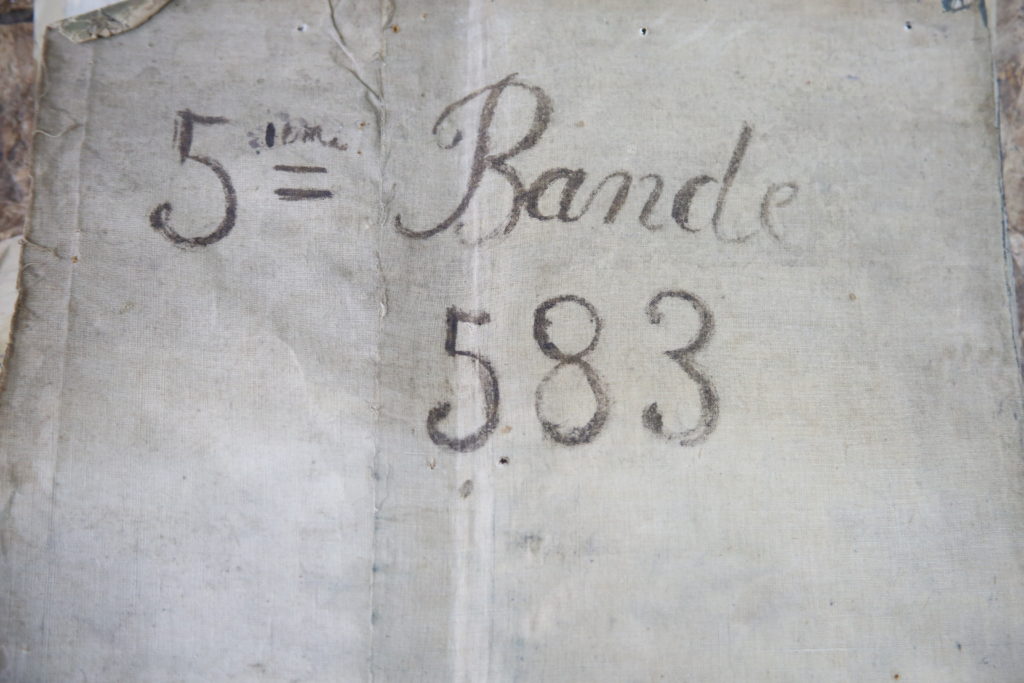 5ème Bande
583